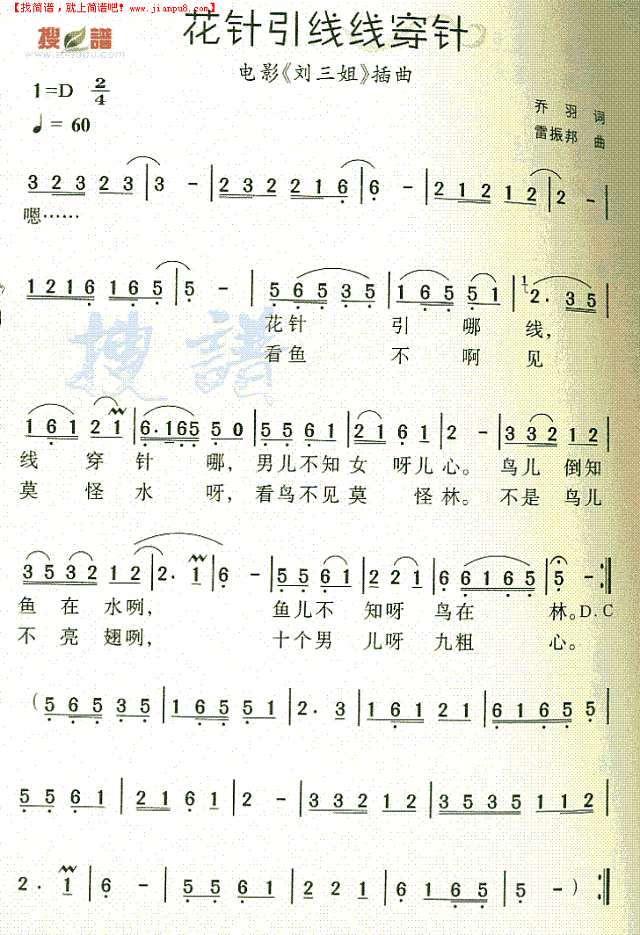 【找简谱，就上简谱吧! www.jianpu8.com】
搜谱
花针引线线穿针
电影《刘三姐》插曲
1=D 2/4
♩= 60
乔 羽 词
雷振邦 曲
3 2 3 2 3 | 3 - | 2 3 2 2 1 6 | 6 - | 2 1 2 1 2 | 2 - |
嗯……
1 2 1 6 1 6 5 | 5 - | 5 6 5 3 5 | 1 6 5 5 | 2. 3 5 |
花针 引 哪 线,
看鱼 不 啊 见
搜谱
1 6 1 2 1 | 6. 1 6 5 5 0 | 5 5 6 1 | 2 1 6 1 | 2 - | 3 3 2 1 2 |
线 穿 针 哪, 男儿不知 女 呀儿 心。 鸟儿 倒知
莫 怪 水 呀, 看鸟不见 莫 怪林。 不是 鸟儿
3 5 3 2 1 2 | 2. 1 | 6 - | 5 5 6 1 | 2 2 1 | 6 1 6 5 | 5 - :|
鱼 在 水咧, 鱼儿不 知呀 鸟在 林。D.C
不 亮 翅咧, 十个男 儿呀 九粗 心。
( 5 6 5 3 5 | 1 6 5 5 | 2. 3 | 1 6 1 2 1 | 6 1 6 5 5 |
5 5 6 1 | 2 1 6 1 | 2 - | 3 3 2 1 2 | 3 5 3 5 1 2 |
2. 1 | 6 - | 5 5 6 1 | 2 2 1 | 6 1 6 5 | 5 - ) :|